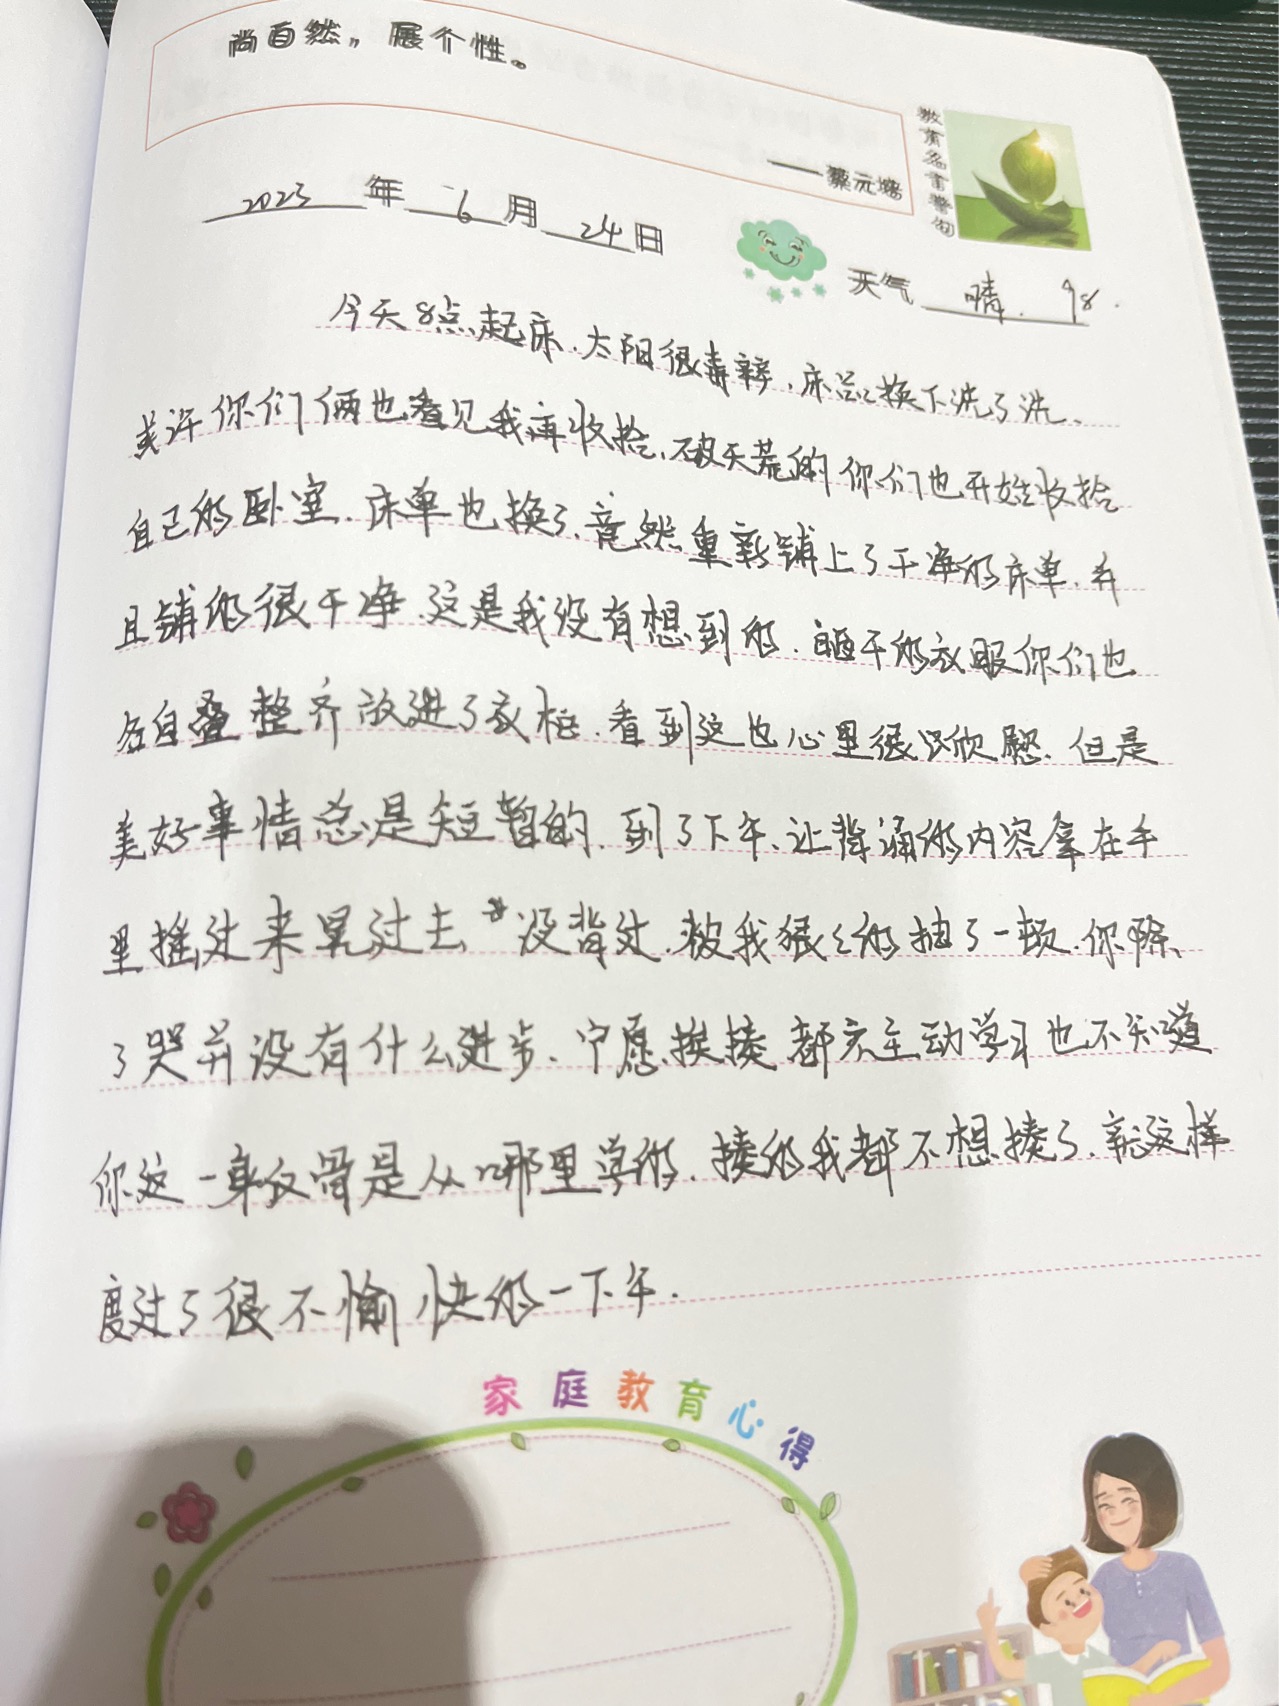 尚自然，展个性。
——蔡元培
教育名言警句
2023年6月24日
天气 晴. 98.
今天8点起床.太阳很毒辣.床品换下洗了洗、
美许你们俩也看见我再收拾.破天荒的你们也开始收拾
自己的卧室.床单也换了.竟然重新铺上了干净的床单.并
且铺的很干净.这是我没有想到的.晒干的衣服你们也
各自叠整齐放进了衣柜.看到这也心里很欣慰.但是
美好事情总是短暂的.到了下午、让背诵的内容拿在手
里摇过来晃过去 没背过.被我狠狠的抽了一顿.你除
了哭并没有什么进步.宁愿挨揍都不主动学习也不知道
你这一身反骨是从哪里学的.揍的我都不想揍了.就这样
度过了很不愉快的一下午.
家庭教育心得